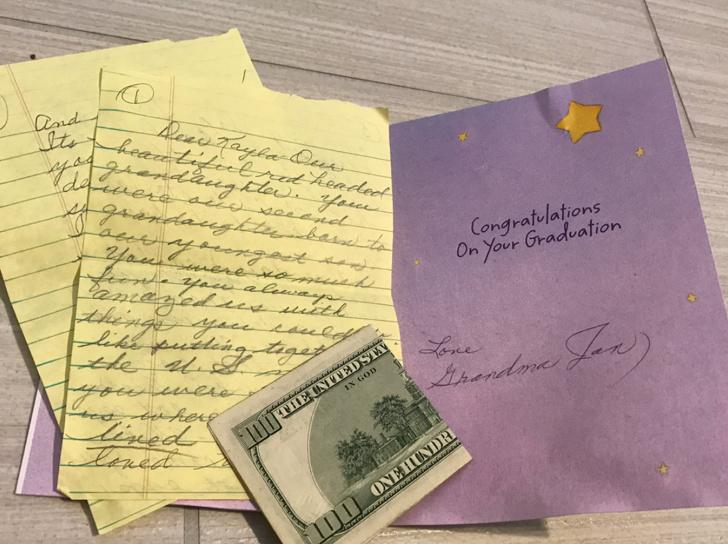 And
Its
you
①
Dear Kayla - Our
beautiful red headed
grandaughter. You
were our second
grandaughter born to
our youngest son
You were so much
fun. You always
amazed us with
things you could
like putting toget
the U.S.
you were
us where
lived
loved
Congratulations
On Your Graduation
Love
Grandma Jan
100
THE UNITED STA
IN GOD
ONE HUNDR
100